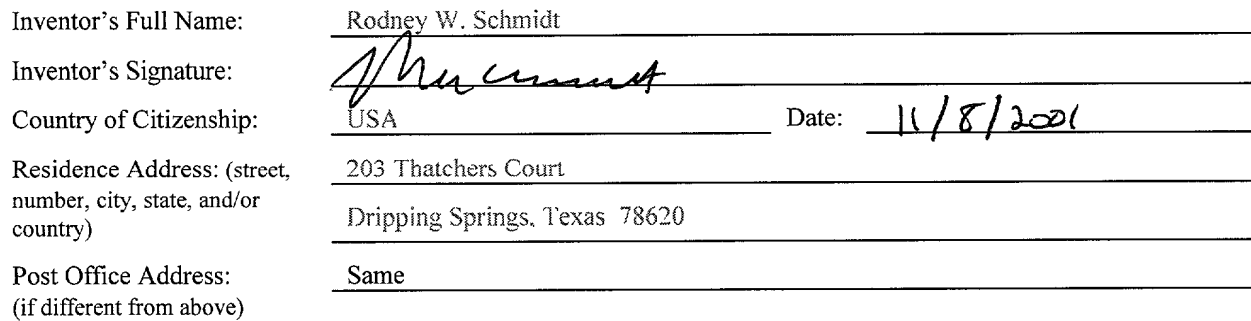 Inventor's Full Name: Rodney W. Schmidt
Inventor's Signature:
Country of Citizenship: USA Date: 11/8/2001
Residence Address: (street, 203 Thatchers Court
number, city, state, and/or
country) Dripping Springs, Texas 78620
Post Office Address: Same
(if different from above)